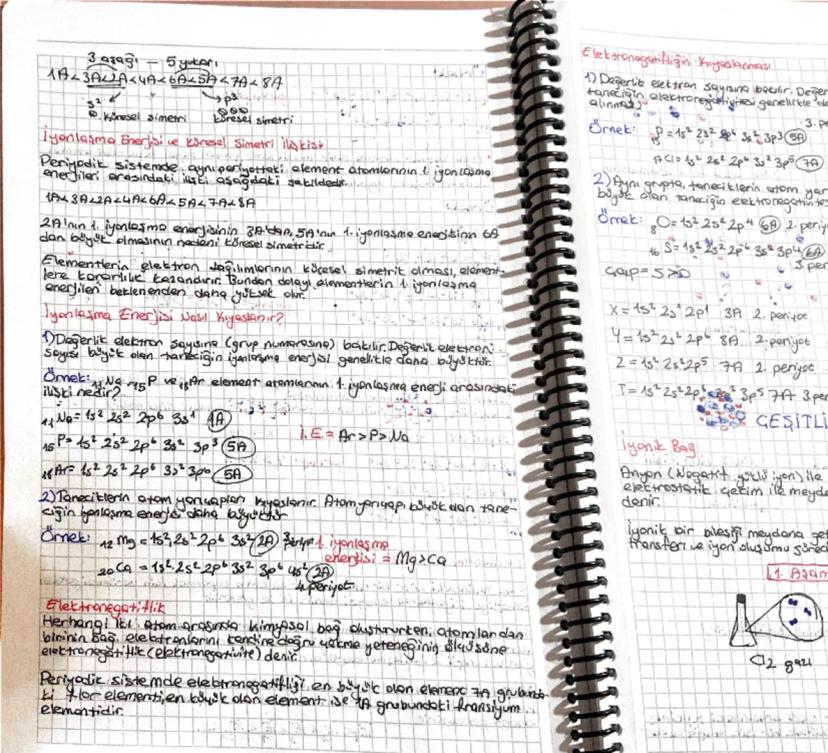 3 aşağı – 5 yukarı
1A < 3A < 2A < 4A < 6A < 5A < 7A < 8A
s² p³
Küresel simetri küresel simetri
İyonlaşma Enerjisi ve Küresel Simetri İlişkisi
Periyodik sistemde aynı periyottaki element atomlarının 1. iyonlaşma
enerjileri arasındaki ilişki aşağıdaki şekildedir.
1A < 3A < 2A < 4A < 6A < 5A < 7A < 8A
2A'nın 1. iyonlaşma enerjisinin 3A'dan, 5A'nın 1. iyonlaşma enerjisinin 6A
dan büyük olmasının nedeni küresel simetridir.
Elementlerin elektron dağılımlarının küresel simetrik olması, element-
lere kararlılık kazandırır. Bundan dolayı elementlerin 1. iyonlaşma
enerjileri beklenenden daha yüksek olur.
İyonlaşma Enerjisi Nasıl Kıyaslanır?
1) Değerlik elektron sayısına (grup numarasına) bakılır. Değerlik elektron
sayısı büyük olan taneciğin iyonlaşma enerjisi genellikle daha büyüktür.
Örnek: ₁₁Na, ₁₅P ve ₁₈Ar element atomlarının 1. iyonlaşma enerji arasındaki
ilişki nedir?
₁₁Na = 1s² 2s² 2p⁶ 3s¹ 1A
₁₅P = 1s² 2s² 2p⁶ 3s² 3p³ 5A İ.E. = Ar > P > Na
₁₈Ar = 1s² 2s² 2p⁶ 3s² 3p⁶ 5A
2) Taneciklerin atom yarıçapları kıyaslanır. Atom yarıçapı büyük olan tane-
ciğin iyonlaşma enerjisi daha büyüktür
Örnek: ₁₂Mg = 1s² 2s² 2p⁶ 3s² 2A 3. periyot 1. iyonlaşma
enerjisi = Mg > Ca
₂₀Ca = 1s² 2s² 2p⁶ 3s² 3p⁶ 4s² 2A
4. periyot
Elektronegatiflik
Herhangi iki atom arasında kimyasal bağ oluştururken, atomlardan
birinin bağ elektronlarını kendine doğru çekme yeteneğinin ölçüsüne
elektronegatiflik (elektronegativite) denir.
Periyodik sistemde elektronegatifliği en büyük olan element 7A grubunda-
ki flor elementi, en küçük olan element ise 1A grubundaki fransiyum
elementidir.
Elektronegatifliğin Kıyaslanması
1) Değerlik elektron sayısına bakılır. Değer
taneciğin elektronegativitesi genellikle
alınmaz.
3. pe
Örnek: ₁₅P = 1s² 2s² 2p⁶ 3s² 3p³ 5A
Cl = 1s² 2s² 2p⁶ 3s² 3p⁵ 7A
2) Aynı grupta, taneciklerin atom yarı
büyük olan taneciğin elektronegativites
Örnek: ₈O = 1s² 2s² 2p⁴ 6A 2. periy
₁₆S = 1s² 2s² 2p⁶ 3s² 3p⁴ 6A
3. per
çap = S > O
X = 1s² 2s² 2p¹ 3A 2. periyot
Y = 1s² 2s² 2p⁶ 8A 2. periyot
Z = 1s² 2s² 2p⁵ 7A 2. periyot
T = 1s² 2s² 2p⁶ 3s² 3p⁵ 7A 3. per
ÇEŞİTLİ
İyonik Bağ
Anyon (Negatif yüklü iyon) ile
elektrostatik çekim ile meyda
denir.
İyonik bir bileşiği meydana get
transferi ve iyon oluşumu süreci
1. Aşam
Cl₂ gazı